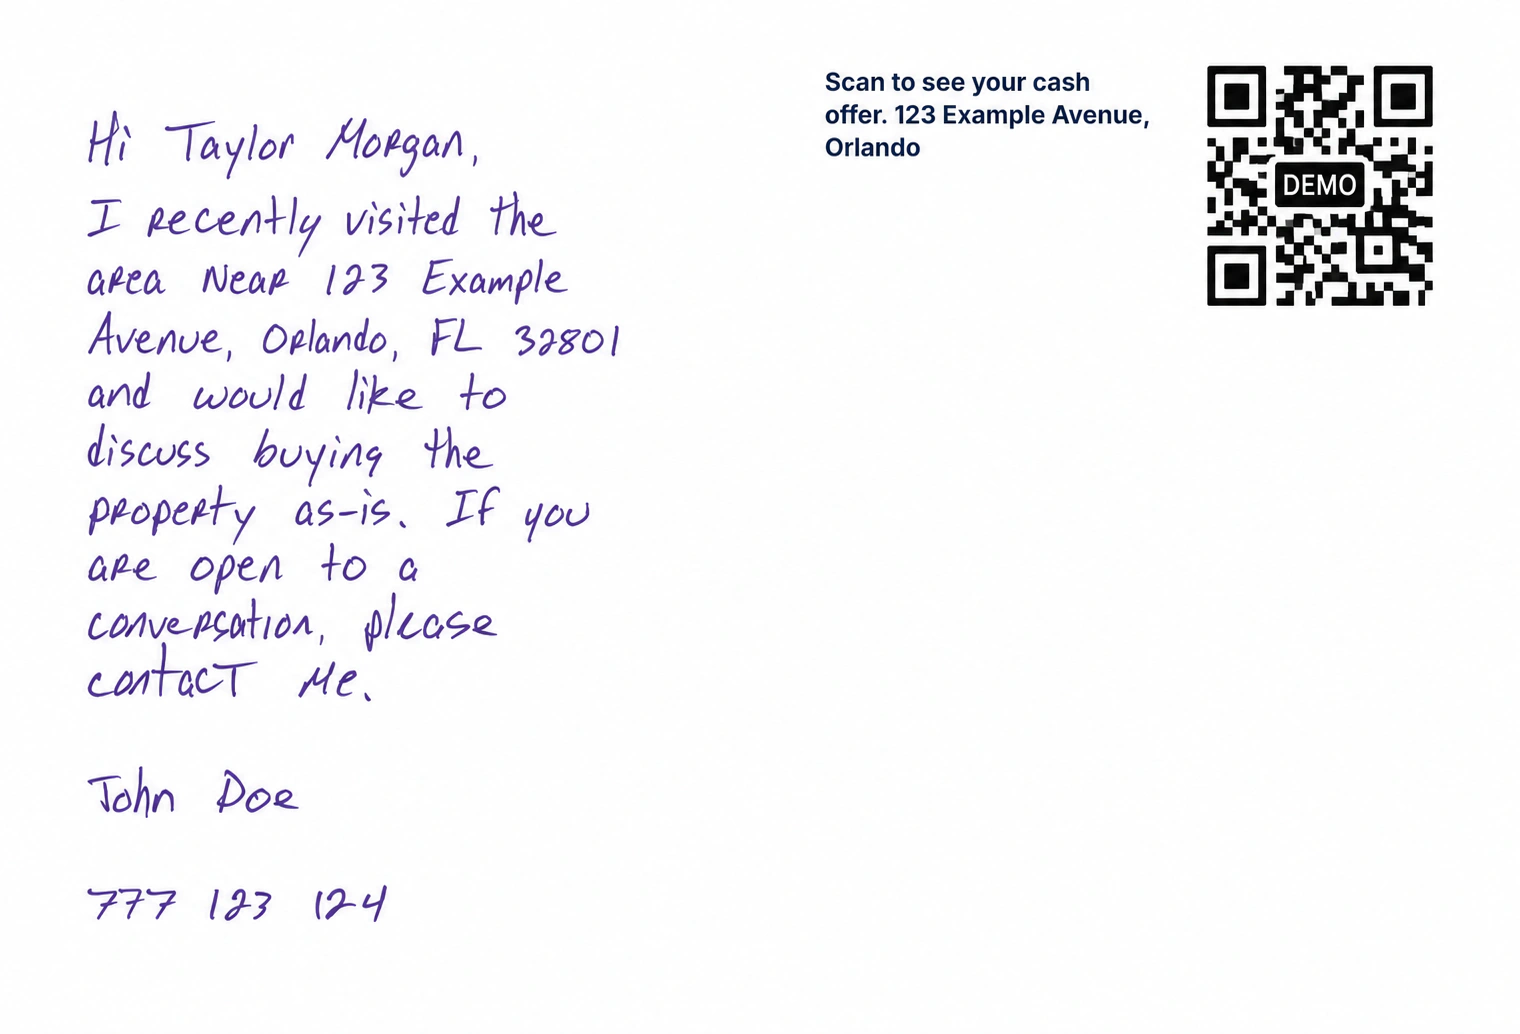 Hi Taylor Morgan,
I recently visited the
area Near 123 Example
Avenue, Orlando, FL 32801
and would like to
discuss buying the
property as-is. If you
are open to a
conversation, please
contact Me.
John Doe
777 123 124
Scan to see your cash
offer. 123 Example Avenue,
Orlando
DEMO